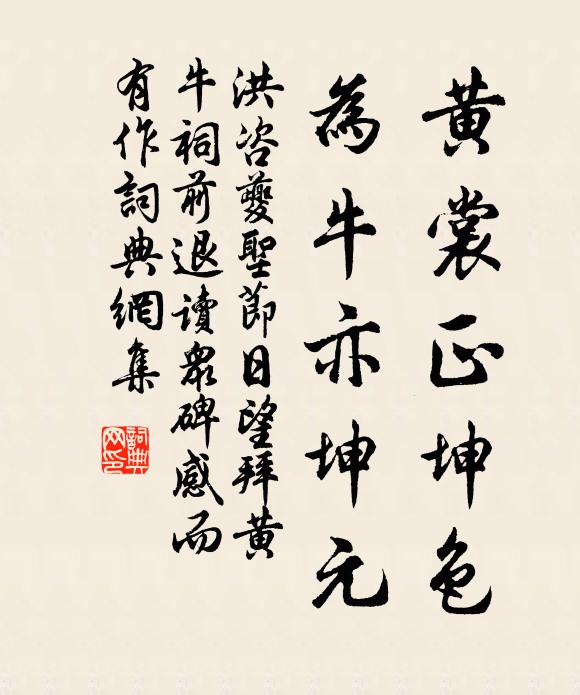 黃裳正坤色
為牛亦坤元
洪咨夔聖節日望拜黃
牛祠前退讀眾碑感而
有作詞典網集
詞典
网印